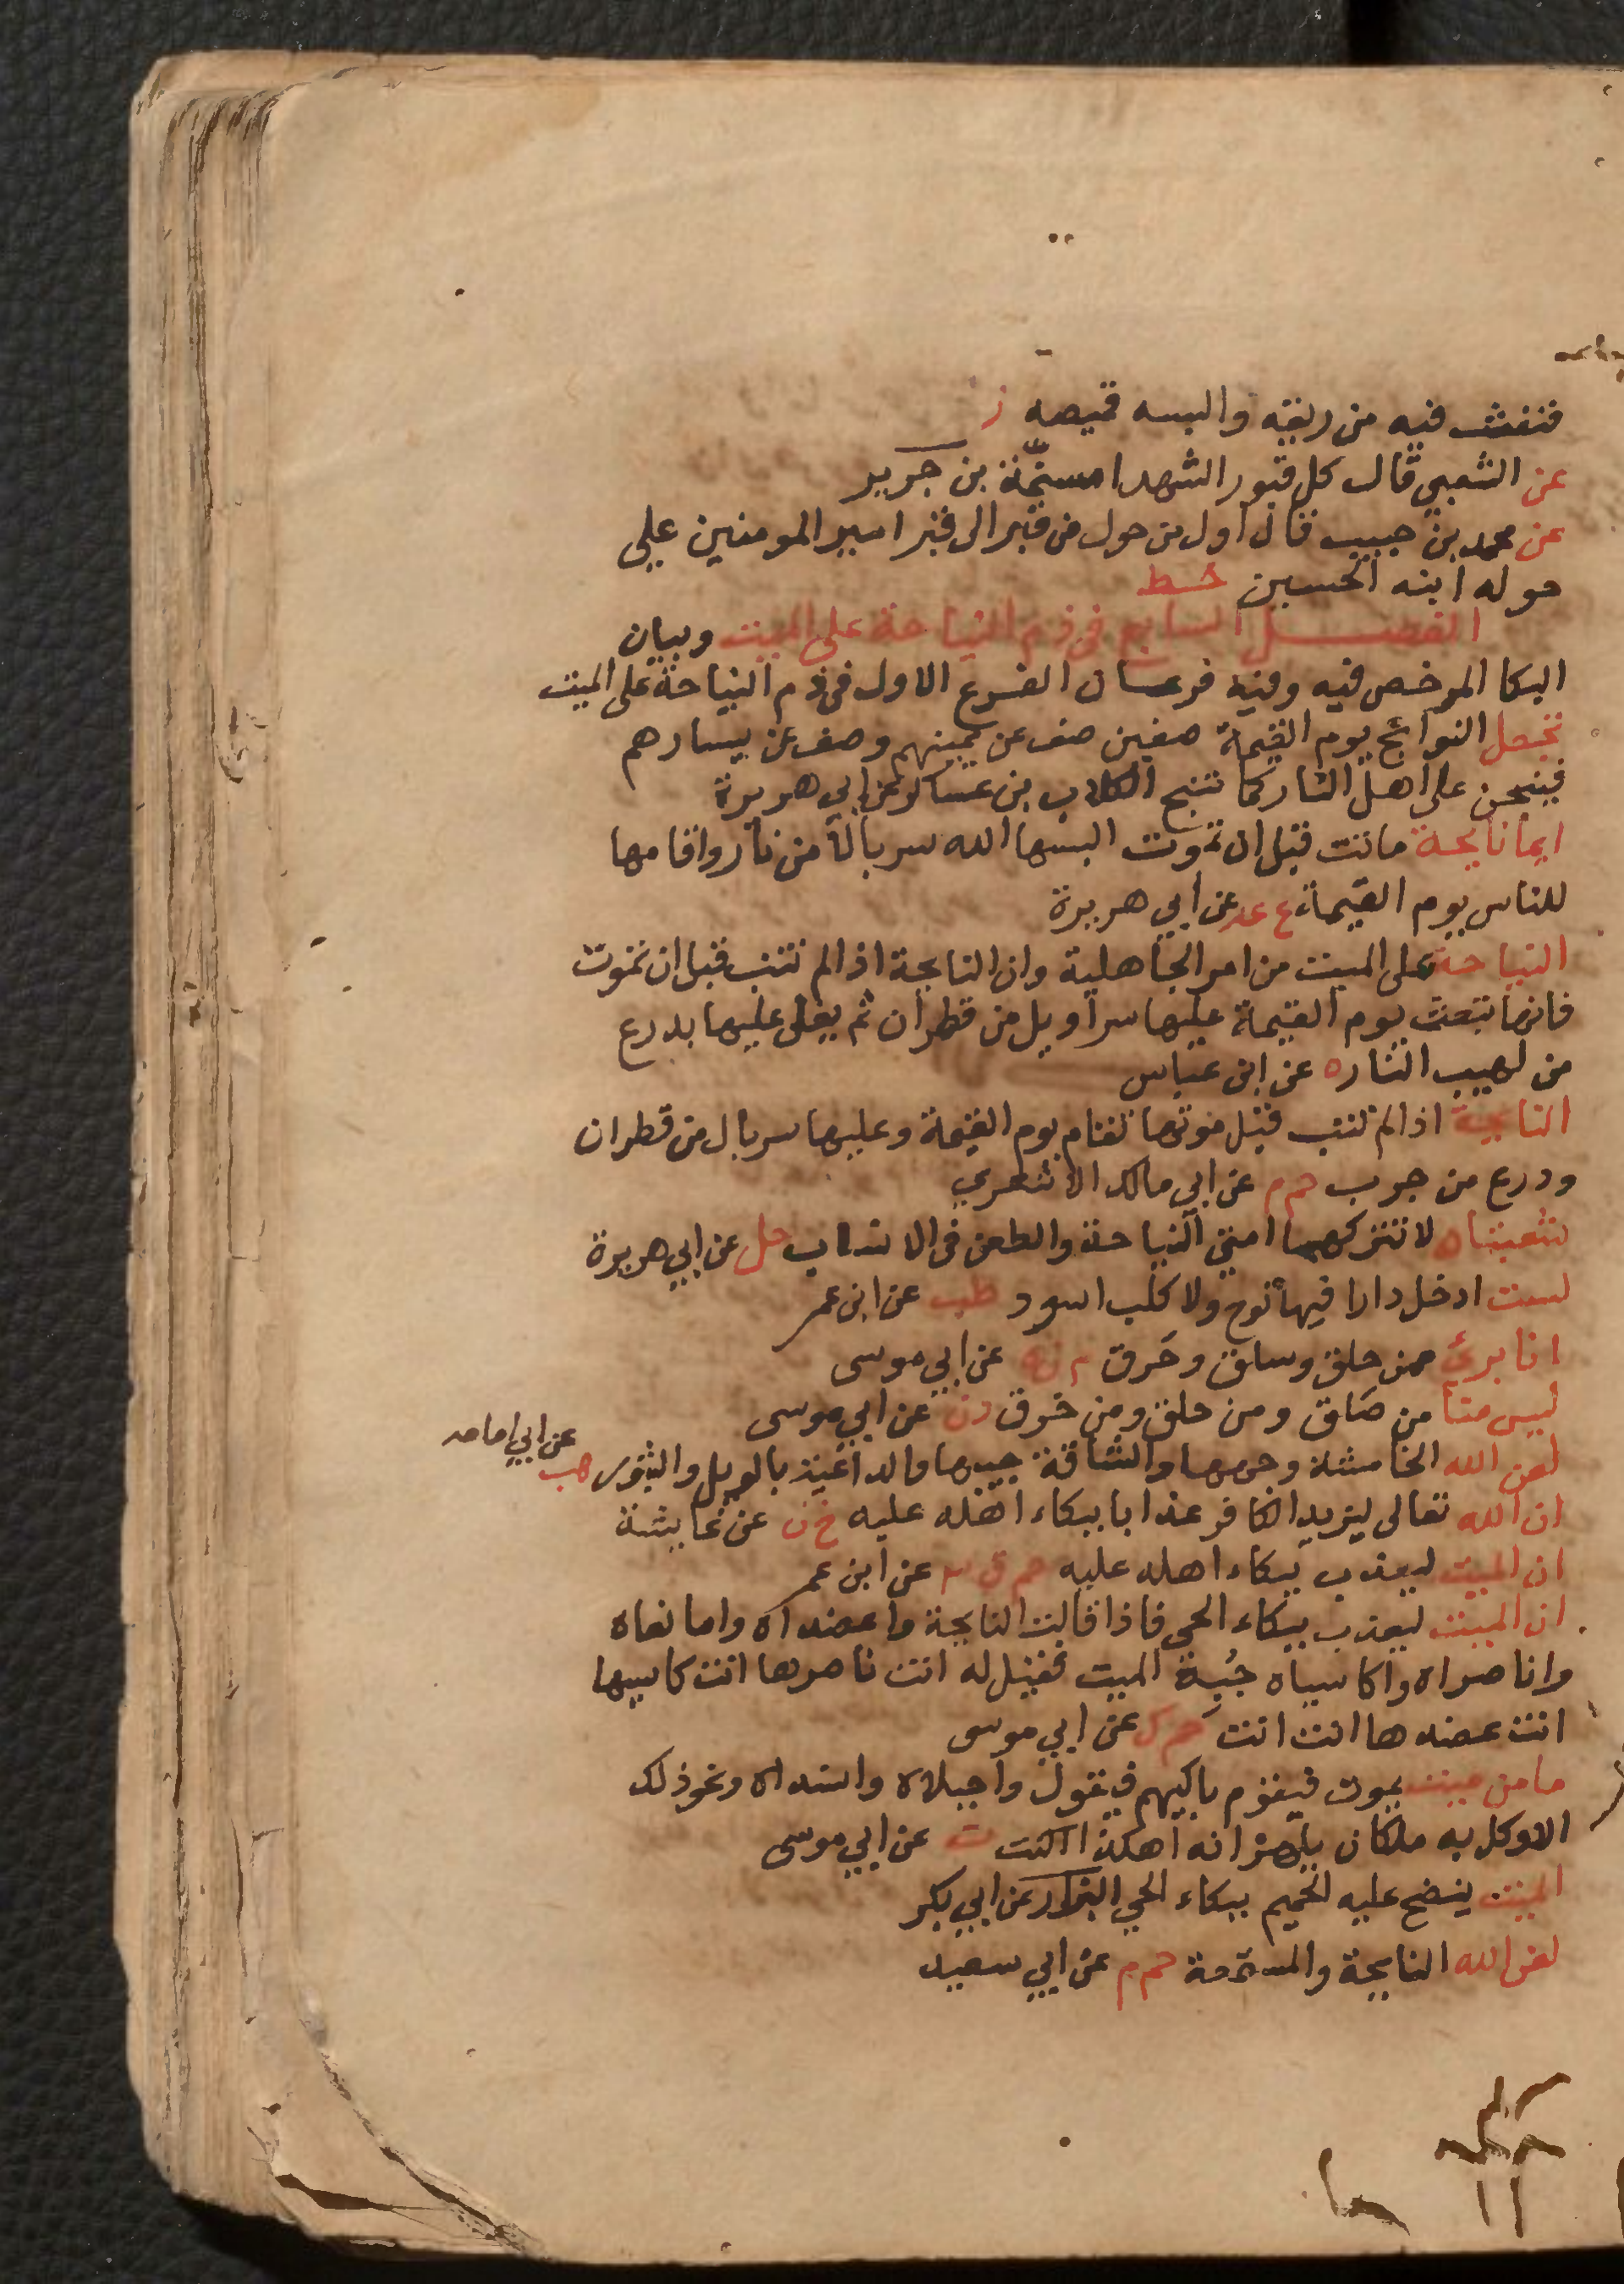 فنفث فيه من ريقه والبسه قميصه ز
عن الشعبي قال كل قبور الشهدا مسنمة بن جرير
عن محمد بن حبيب قال اول من حول من قبر الى قبر امير المومنين علي
حوله ابنه الحسين خط
الفصل السابع في ذم النياحة على الميت وبيان
البكا المرخص فيه وفيه فرعان الفرع الاول في ذم النياحة على الميت
تجعل النوائح يوم القيمة صفين صف عن يمينهم وصف عن يسارهم
فينبحن على اهل النار كما تنبح الكلاب بن عساكر عن ابي هريرة
ايما نايحة ماتت قبل ان تموت البسها الله سربالا من نار واقامها
للناس يوم القيمة ع عد عن ابي هريرة
النياحة على الميت من امر الجاهلية وان النايحة اذا لم تتب قبل ان تموت
فانها تبعث يوم القيمة عليها سراويل من قطران ثم يغلى عليها بدرع
من لهيب النار ه عن ابن عباس
النايحة اذا لم تتب قبل موتها تقام يوم القيمة وعليها سربال من قطران
ودرع من جرب حم م عن ابي مالك الاشعري
شعبتان لا تتركهما امتي النياحة والطعن في الانساب حل عن ابي هريرة
لست ادخل دارا فيها نوح ولا كلب اسود طب عن ابن عمر
انا برئ ممن حلق وسلق وخرق م ن ه عن ابي موسى
ليس منا من صلق ومن حلق ومن خرق د ن عن ابي موسى
لعن الله الخامشة وجهها والشاقة جيبها والداعية بالويل والثبور هب عن ابي امامه
ان الله تعالى ليزيد الكافر عذابا ببكاء اهله عليه خ ن عن عايشة
ان الميت ليعذب ببكاء اهله عليه حم ق ٣ عن ابن عمر
ان الميت ليعذب ببكاء الحي فاذا قالت النايحة واعضداه وامانعاه
واناصراه واكاسياه جبذ الميت فقيل له انت ناصرها انت كاسيها
انت عضدها انت انت حم ك عن ابي موسى
ما من ميت يموت فيقوم باكيهم فيقول واجبلاه واسنداه ونحو ذلك
الا وكل به ملكان يلهزانه اهكذا كنت ت عن ابي موسى
الميت ينضح عليه الحميم ببكاء الحي البزار عن ابي بكر
لعن الله النايحة والمستمعة حم م عن ابي سعيد